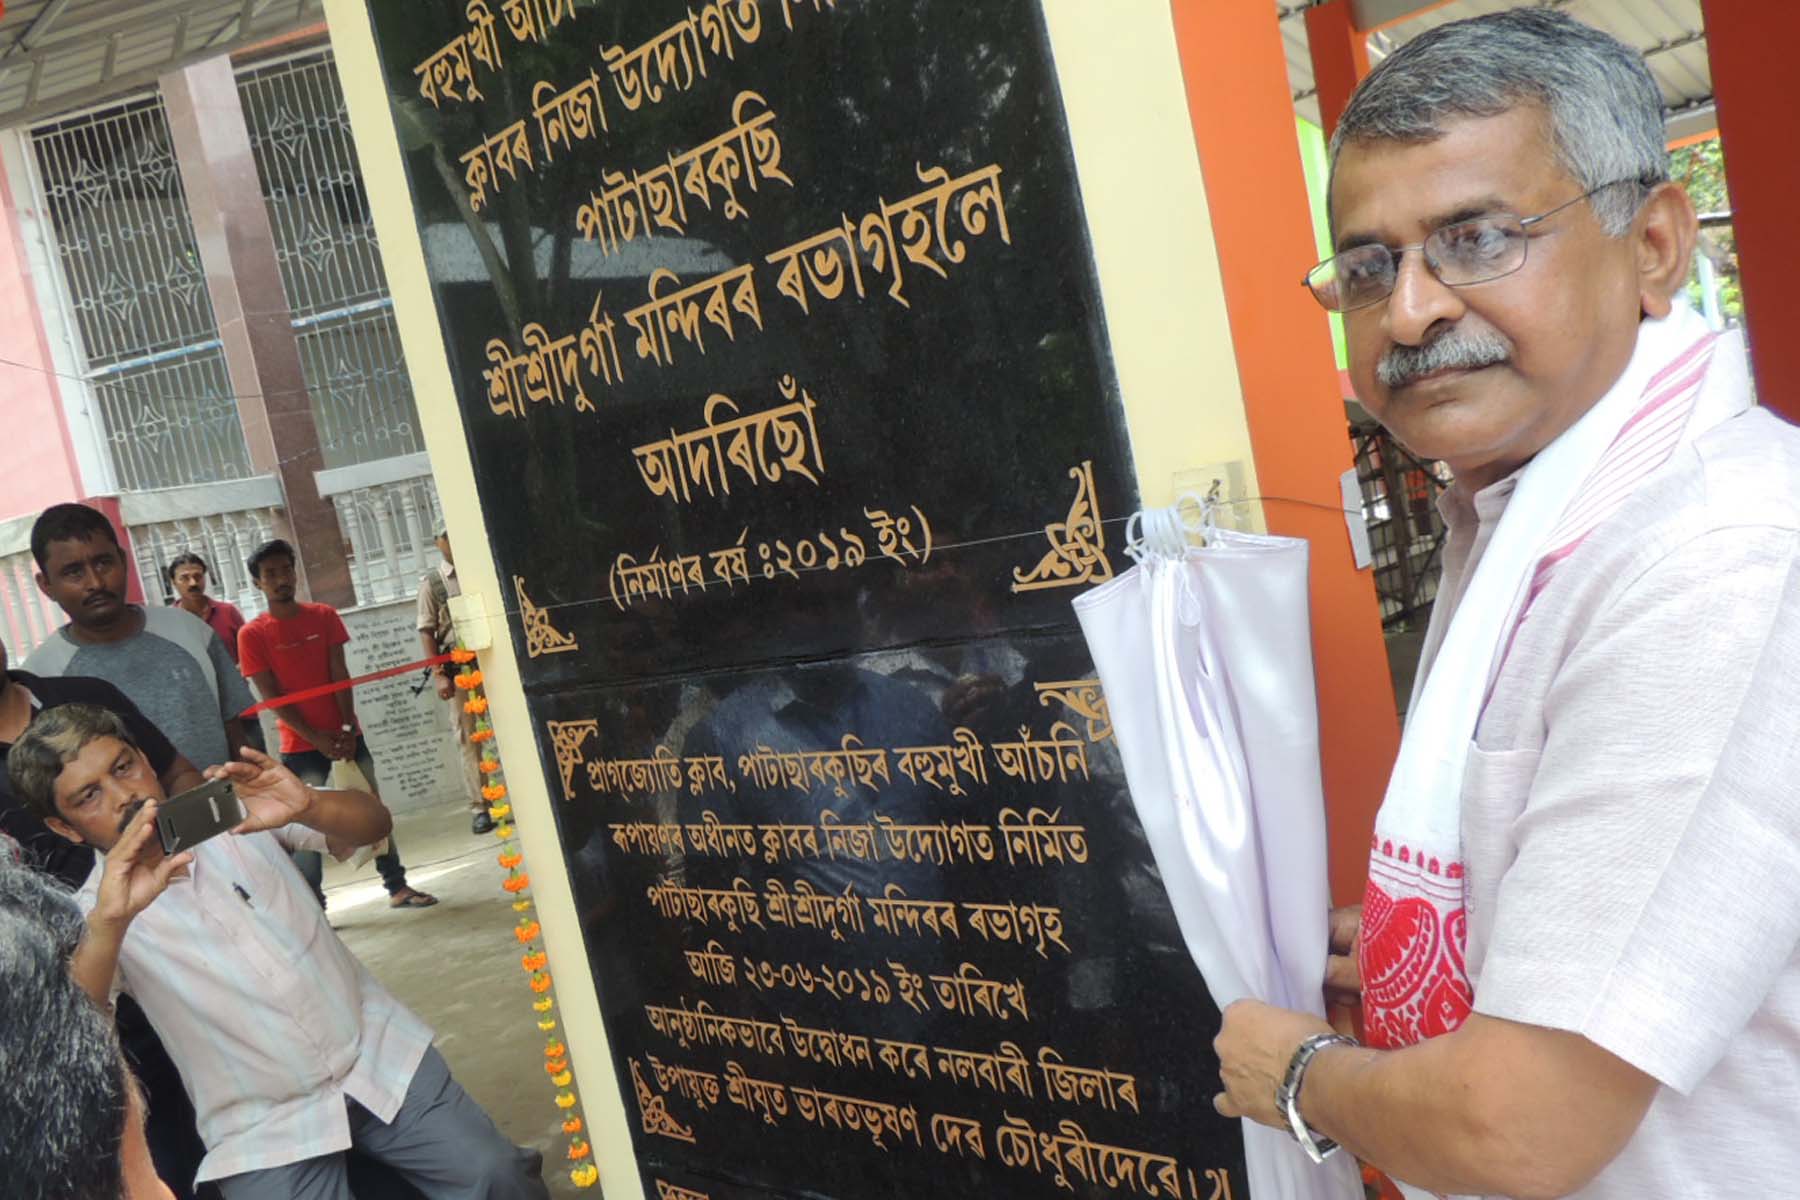 বহুমুখী
ক্লাবৰ নিজা উদ্যোগত
পাটাছাৰকুছি
শ্ৰীশ্ৰীদুৰ্গা মন্দিৰৰ ৰভাগৃহলৈ
আদৰিছোঁ
(নিৰ্মাণৰ বৰ্ষ ঃ২০১৯ ইং)
প্ৰাগজ্যোতি ক্লাব, পাটাছাৰকুছিৰ বহুমুখী আঁচনি
ৰূপায়ণৰ অধীনত ক্লাবৰ নিজা উদ্যোগত নিৰ্মিত
পাটাছাৰকুছি শ্ৰীশ্ৰীদুৰ্গা মন্দিৰৰ ৰভাগৃহ
আজি ২৩-০৬-২০১৯ ইং তাৰিখে
আনুষ্ঠানিকভাবে উদ্বোধন কৰে নলবাৰী জিলাৰ
উপায়ুক্ত শ্ৰীযুত ভাৰতভূষণ দেৱ চৌধুৰীদেৱে।